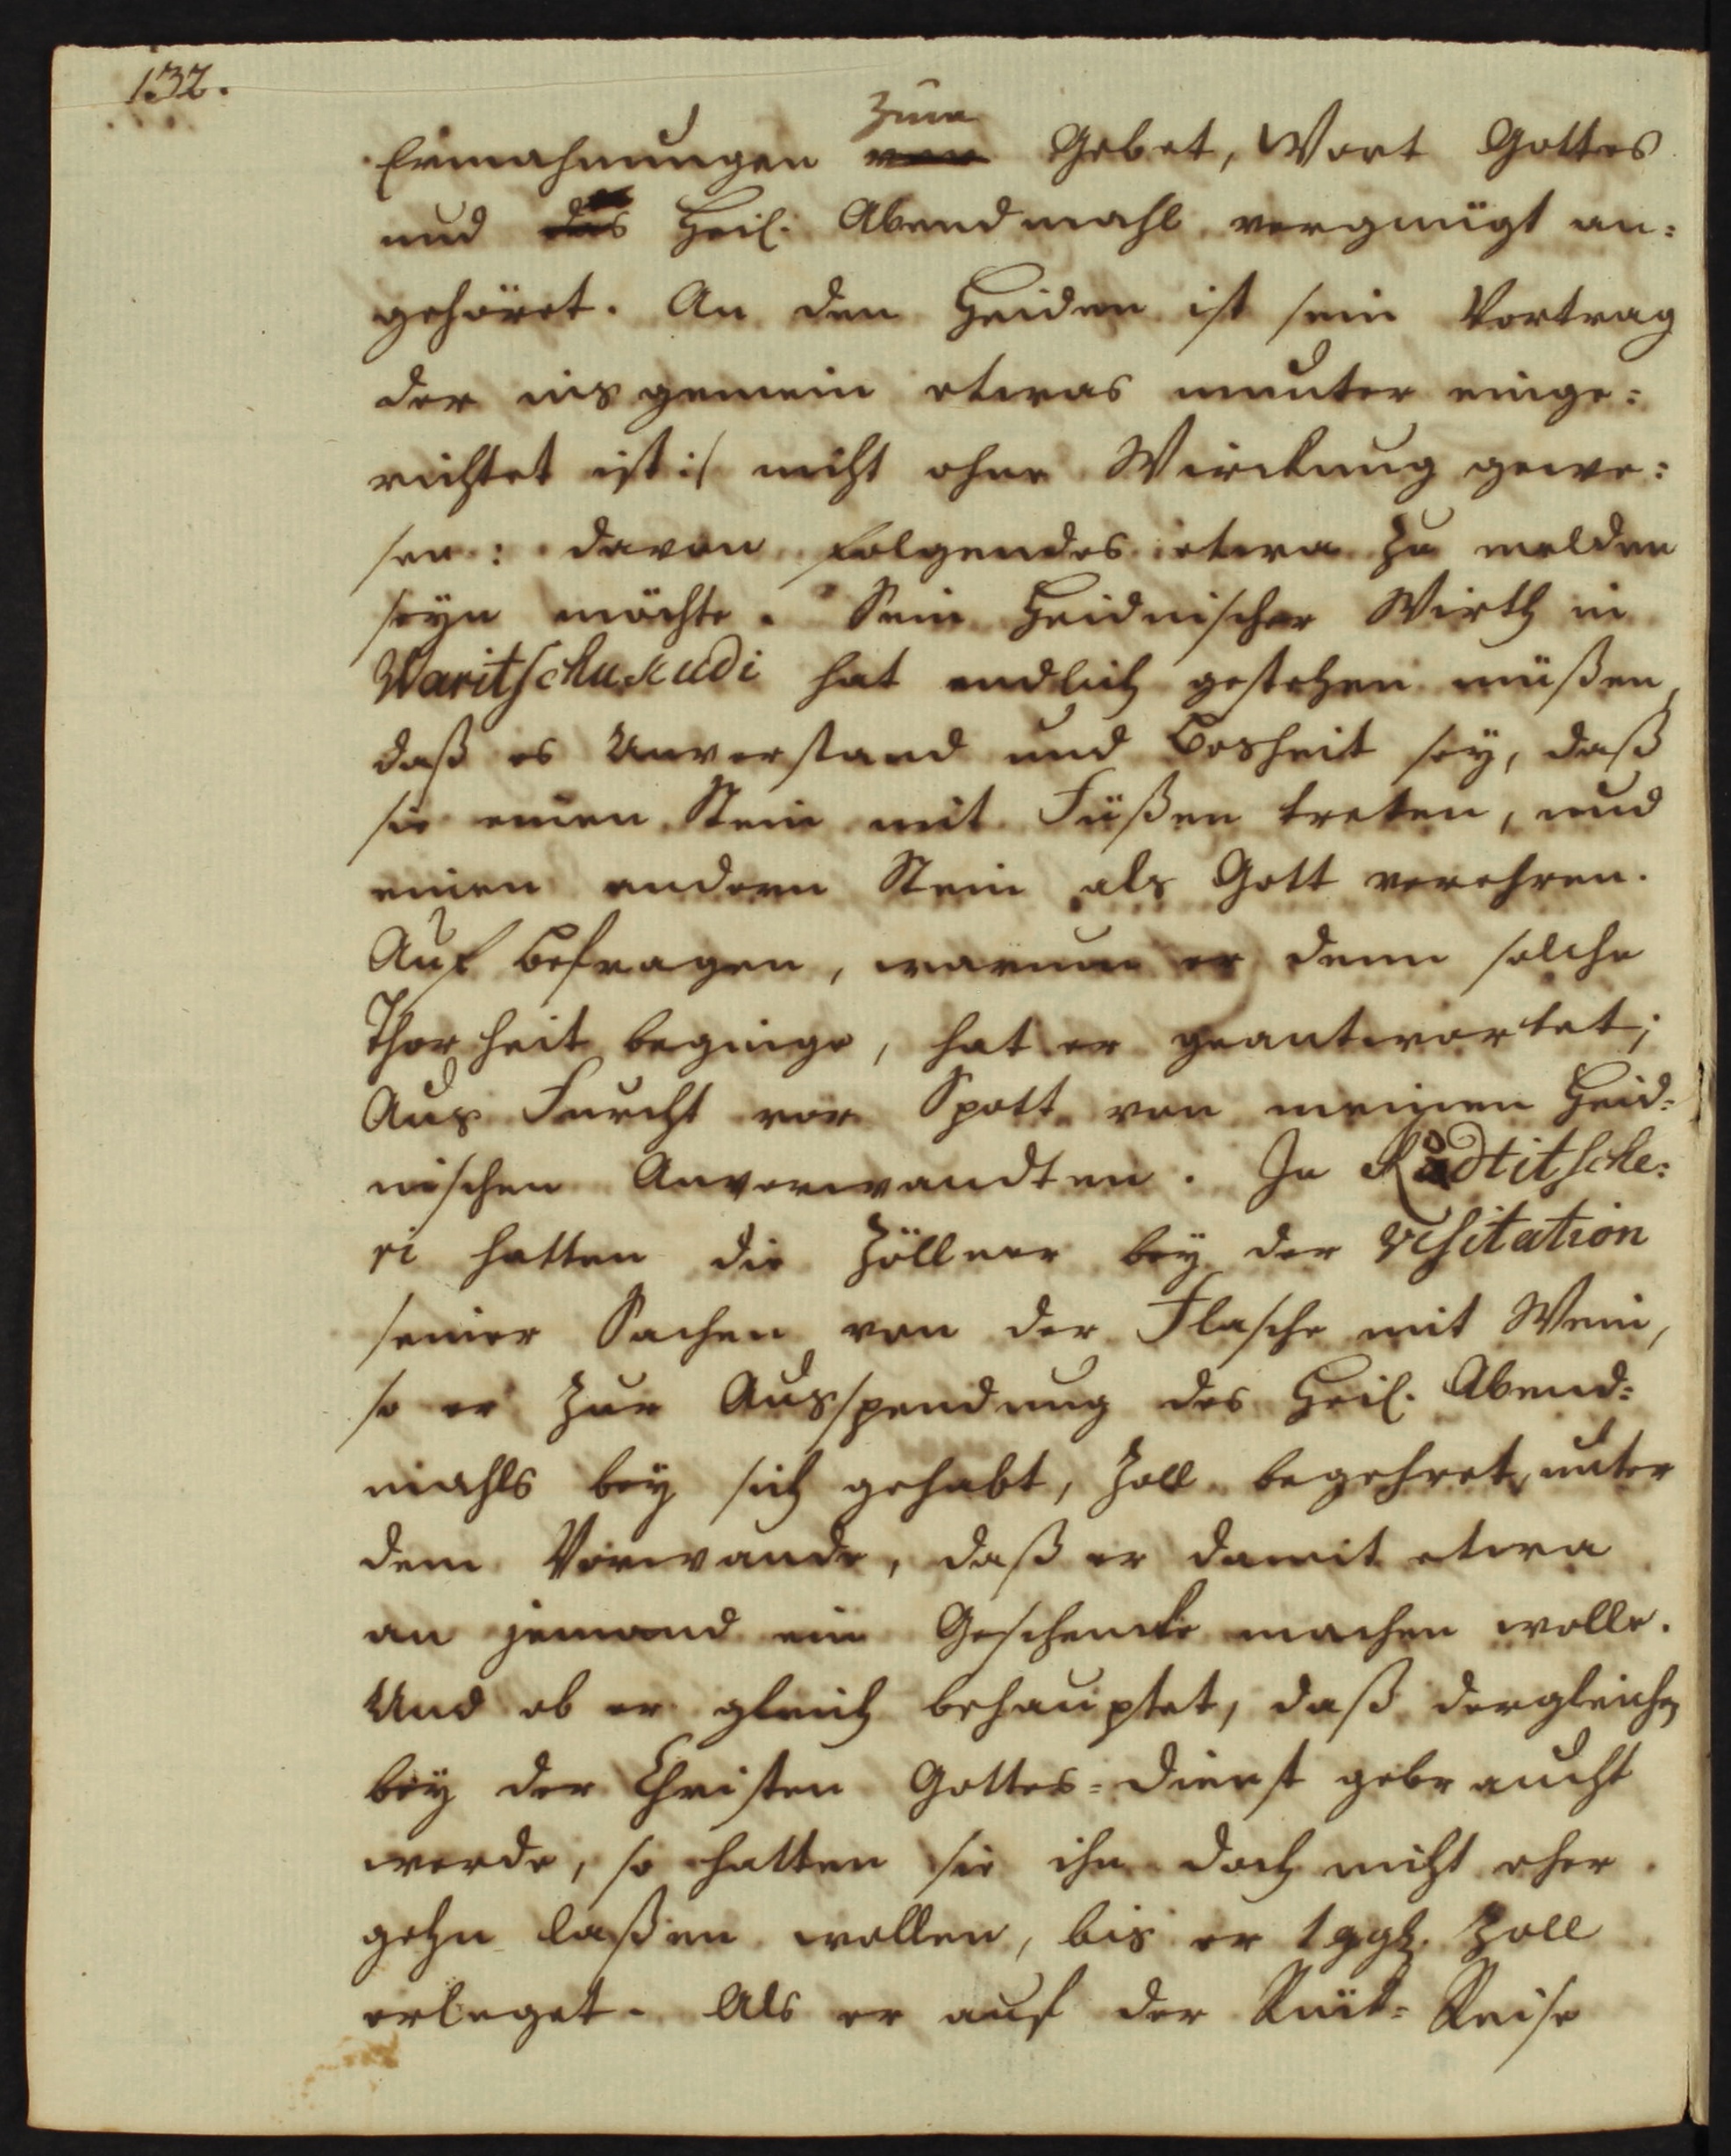 132.
zum
Ermahnungen von Gebet, Wort Gottes
und das Heil. Abendmahl vergnügt an=
gehöret. An den Heiden ist sein Vortrag
der insgemein etwas munter einge=
richtet ist :/ nicht ohne Wirckung gewe=
sen: davon folgendes etwa zu melden
seyn möchte. Sein Heidnischer Wirth in
Waritschukudi hat endlich gestehen müßen,
daß es Unverstand und Bosheit sey, daß
sie einen Stein mit Füßen treten, und
einen andern Stein als Gott verehren.
Auf Befragen, warum er denn solche
Thorheit beginge, hat er geantwortet;
Aus Furcht vor Spott von meinen Heid=
nischen Anverwandten. In Rudtitsche=
ri hatten die Zöllner bey der Visitation
seiner Sachen von der Flasche mit Wein,
so er zur Ausspendung des Heil. Abend=
mahls bey sich gehabt, Zoll begehret, unter
dem Vorwande, daß er damit etwa
an jemand ein Geschencke machen wolle.
Und ob er gleich behauptet, daß dergleichen
bey der Christen Gottes=dienst gebraucht
werde, so hatten sie ihn doch nicht eher
gehn laßen wollen, bis er 1 ggl. Zoll
erleget. Als er auf der Rük=Reise